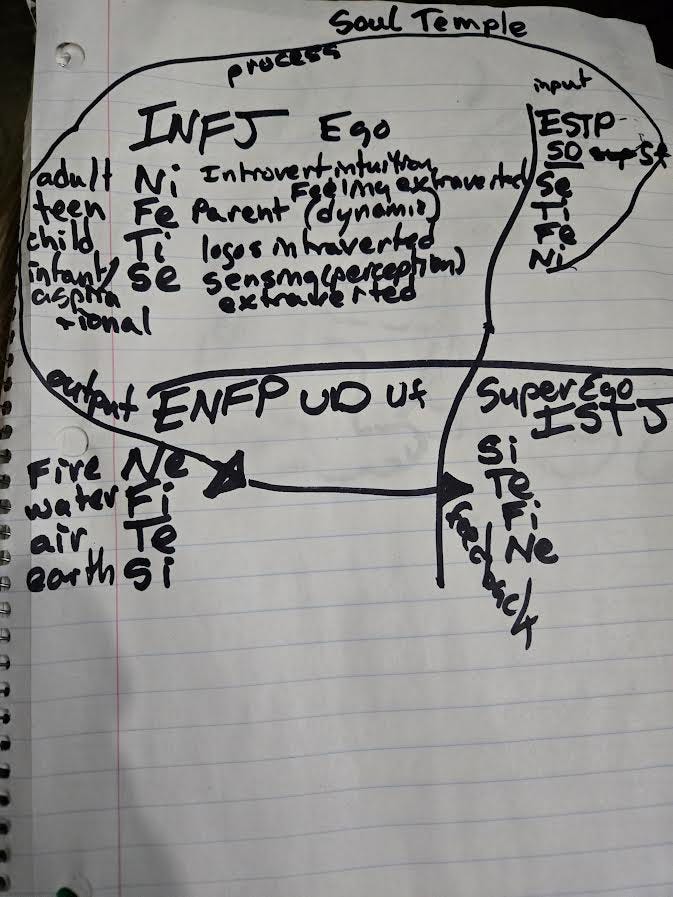 Soul Temple
process
input
INFJ Ego
ESTP
SO
adult Ni Introvert intuition
Feeling extraverted
teen Fe Parent (dynamic)
child Ti logos intraverted
infant/ Se sensing (perception)
aspira extraverted
tional
Se
Ti
Fe
Ni
output ENFP UD UF
Fire Ne
water Fi
air Te
earth Si
SuperEgo
ISTJ
Si
Te
Fi
Ne
feedback